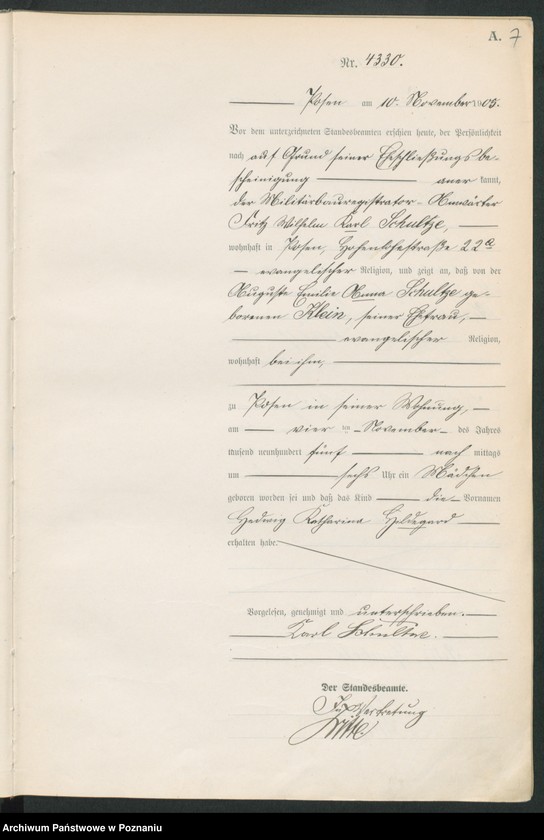 A. 7
Nr. 4330.
Posen am 10. November 1905.
Vor dem unterzeichneten Standesbeamten erschien heute, der Persönlichkeit
nach auf Grund seiner Eheschließungsbe-
scheinigung anerkannt,
der Militärbauregistrator-Anwärter
Fritz Wilhelm Karl Schultze,
wohnhaft in Posen, Hohenlohestraße 22a
evangelischer Religion, und zeigt an, daß von der
Auguste Emilie Anna Schultze ge-
borenen Klein, seiner Ehefrau,
evangelischer Religion,
wohnhaft bei ihm,
zu Posen in seiner Wohnung,
am vier ten November des Jahres
tausend neunhundert fünf nach mittags
um sechs Uhr ein Mädchen
geboren worden sei und daß das Kind die Vornamen
Hedwig Katharina Hildegard
erhalten habe.
Vorgelesen, genehmigt und unterschrieben.
Karl Schultze.
Der Standesbeamte.
In Vertretung
Archiwum Państwowe w Poznaniu